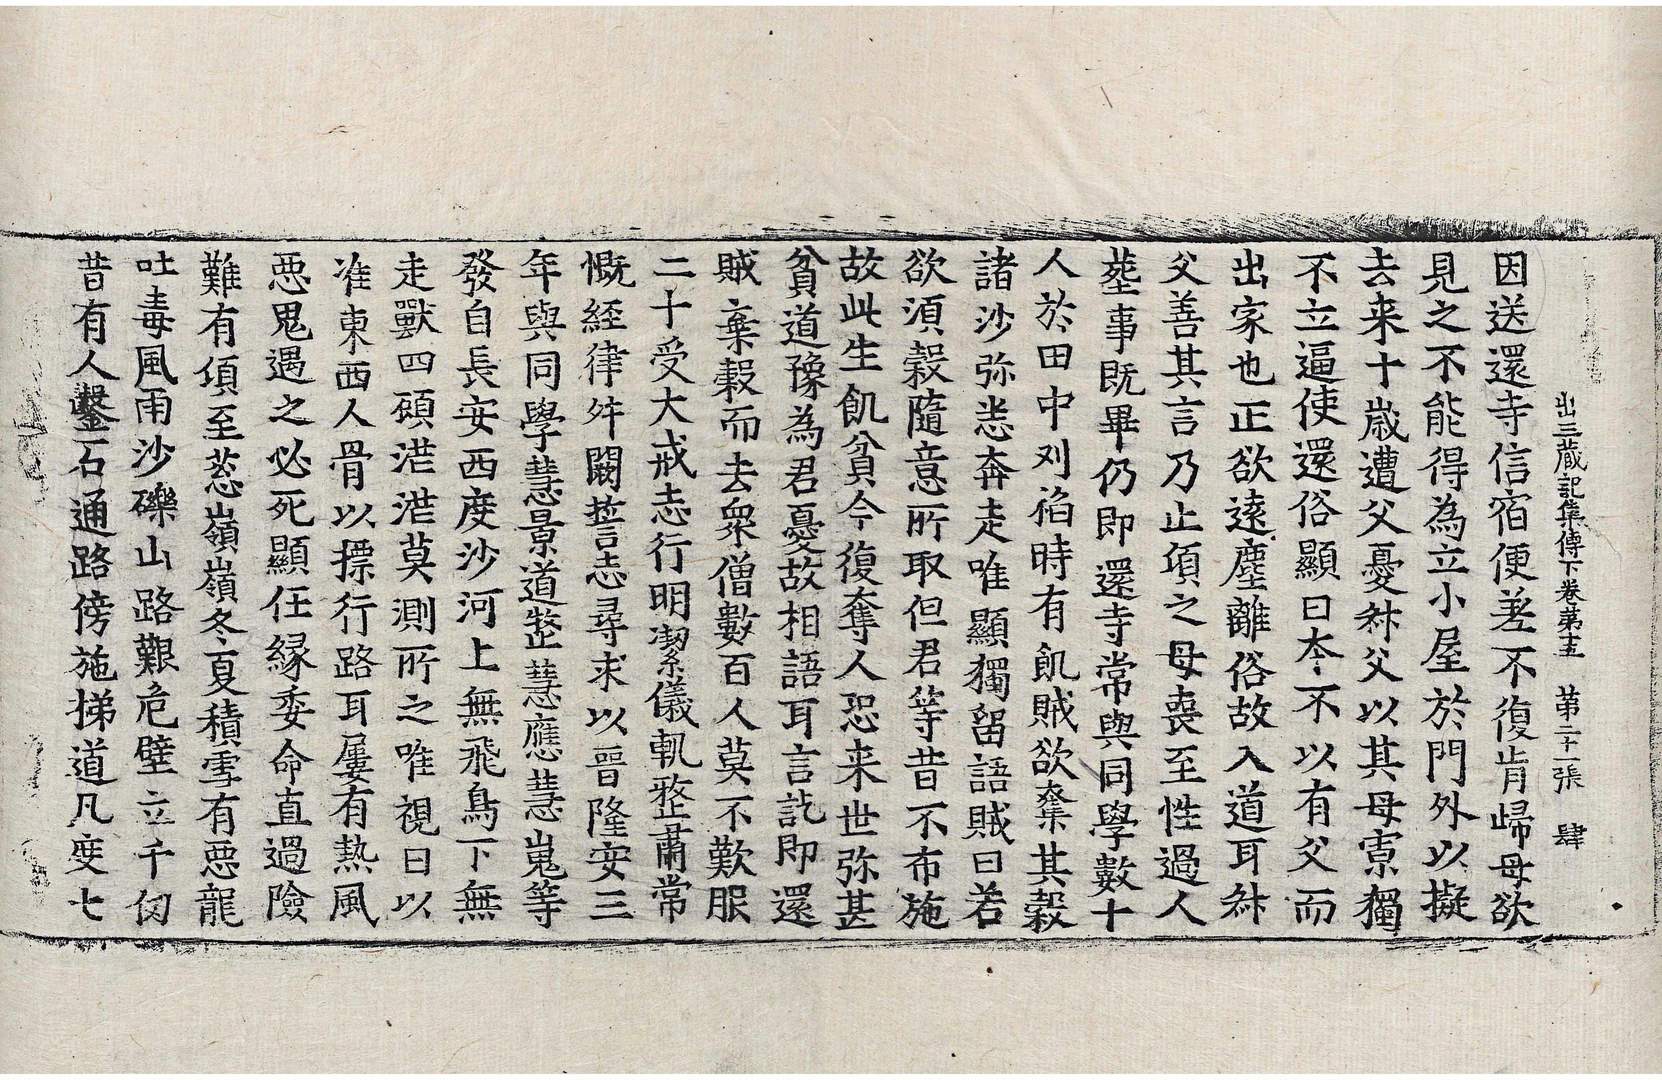 出三蔵記集傳下卷第十五　第二十一張　肆
因送還寺信宿便差不復肯歸母欲
見之不能得為立小屋於門外以擬
去来十歲遭父憂叔父以其母寡獨
不立逼使還俗顯曰本不以有父而
出家也正欲遠塵離俗故入道耳叔
父善其言乃止頃之母喪至性過人
葬事既畢仍即還寺常與同學數十
人於田中刈稻時有飢賊欲奪其穀
諸沙弥悉奔走唯顯獨留語賊曰若
欲湏穀隨意所取但君等昔不布施
故此生飢貧今復奪人恐来世弥甚
貧道豫為君憂故相語耳言訖即還
賊棄穀而去衆僧數百人莫不歎服
二十受大戒志行明潔儀軌整肅常
慨經律舛闕誓志尋求以晉隆安三
年與同學慧景道整慧應慧嵬等
發自長安西度沙河上無飛鳥下無
走獸四顧茫茫莫測所之唯視日以
准東西人骨以摽行路耳屢有熱風
惡鬼遇之必死顯任緣委命直過險
難有頃至葱嶺嶺冬夏積雪有惡龍
吐毒風雨沙礫山路艱危壁立千仞
昔有人鑿石通路傍施梯道凡度七